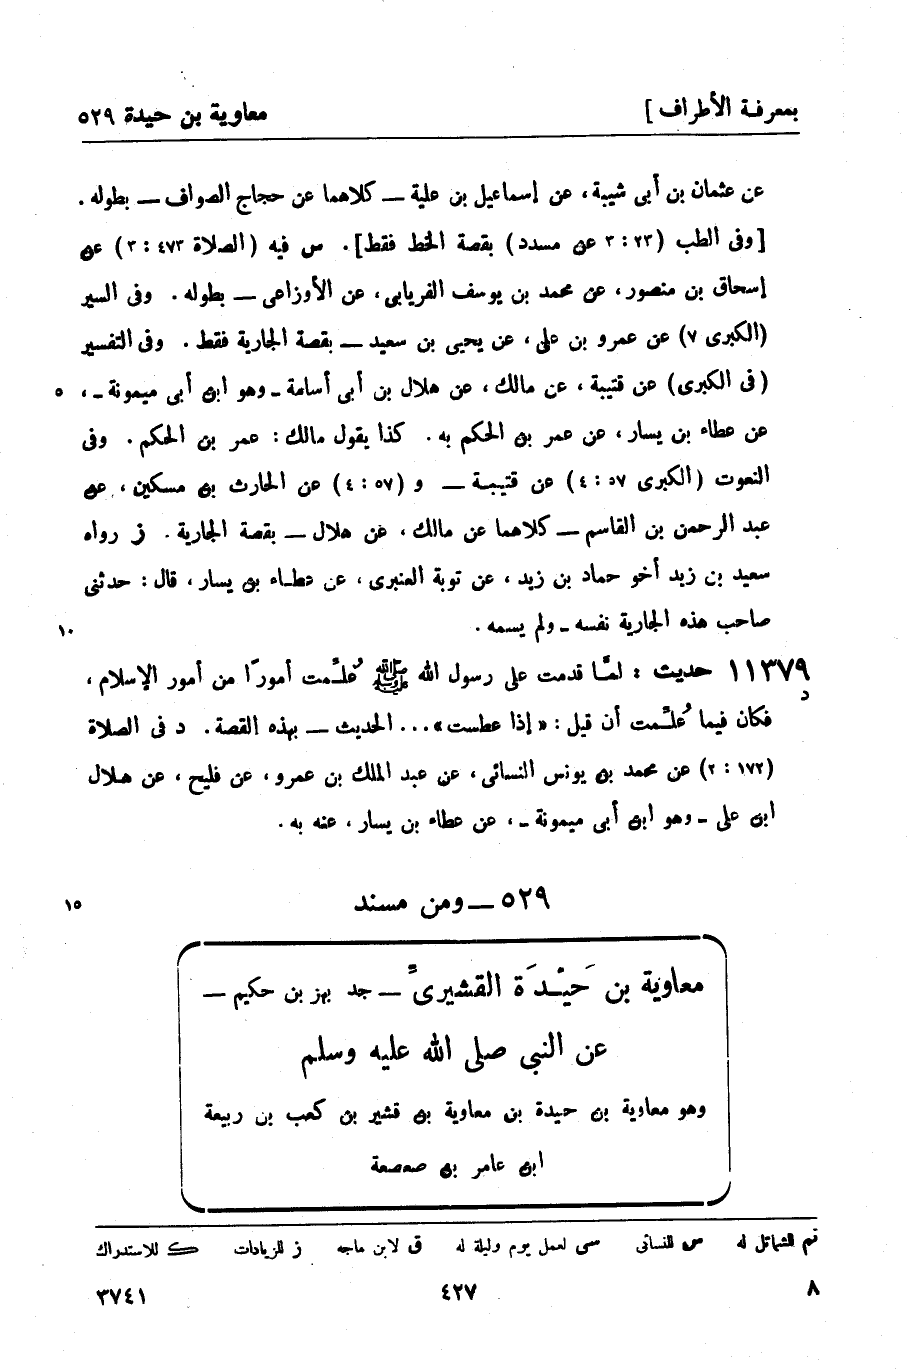 بمعرفة الأطراف ] معاوية بن حيدة ٥٢٩
عن عثمان بن أبى شيبة ، عن إسماعيل بن علية ــ كلاهما عن حجاج الصواف ــ بطوله .
[وفى الطب (٢٣ : ٣ عن مسدد) بقصة الخط فقط] . س فيه (الصلاة ٤٧٣ : ٢) عن
إسحاق بن منصور ، عن محمد بن يوسف الفريابى ، عن الأوزاعى ــ بطوله . وفى السير
(الكبرى ٧) عن عمرو بن على ، عن يحيى بن سعيد ــ بقصة الجارية فقط . وفى التفسير
(فى الكبرى) عن قتيبة ، عن مالك ، عن هلال بن أبى أسامة ــ وهو ابن أبى ميمونة ــ ، ٥
عن عطاء بن يسار ، عن عمر بن الحكم به . كذا يقول مالك : عمر بن الحكم . وفى
النعوت (الكبرى ٥٧ : ٤) عن قتيبة ــ و (٥٧ : ٤) عن الحارث بن مسكين ، عن
عبد الرحمن بن القاسم ــ كلاهما عن مالك ، عن هلال ــ بقصة الجارية . ز رواه
سعيد بن زيد أخو حماد بن زيد ، عن توبة العنبرى ، عن عطاء بن يسار ، قال : حدثنى
صاحب هذه الجارية نفسه ــ ولم يسمه . ١٠
١١٣٧٩ حديث : لمَّا قدمت على رسول الله ﷺ عُلِّمت أمورًا من أمور الإسلام ،
د فكان فيما عُلِّمت أن قيل : « إذا عطست» ... الحديث ــ بهذه القصة . د فى الصلاة
(١٧٢ : ٢) عن محمد بن يونس النسائى ، عن عبد الملك بن عمرو ، عن فليح ، عن هلال
ابن على ــ وهو ابن أبى ميمونة ــ ، عن عطاء بن يسار ، عنه به .
٥٢٩ ــ ومن مسند ١٥
معاوية بن حَيْدَة القشيرىّ ــ جد بهز بن حكيم ــ
عن النبى صلى الله عليه وسلم
وهو معاوية بن حيدة بن معاوية بن قشير بن كعب بن ربيعة
ابن عامر بن صعصعة
تم للشمائل له س للنسائى سى لعمل يوم وليلة له ق لابن ماجه ز للزيادات ك للاستدراك
٨ ٤٢٧ ٣٧٤١